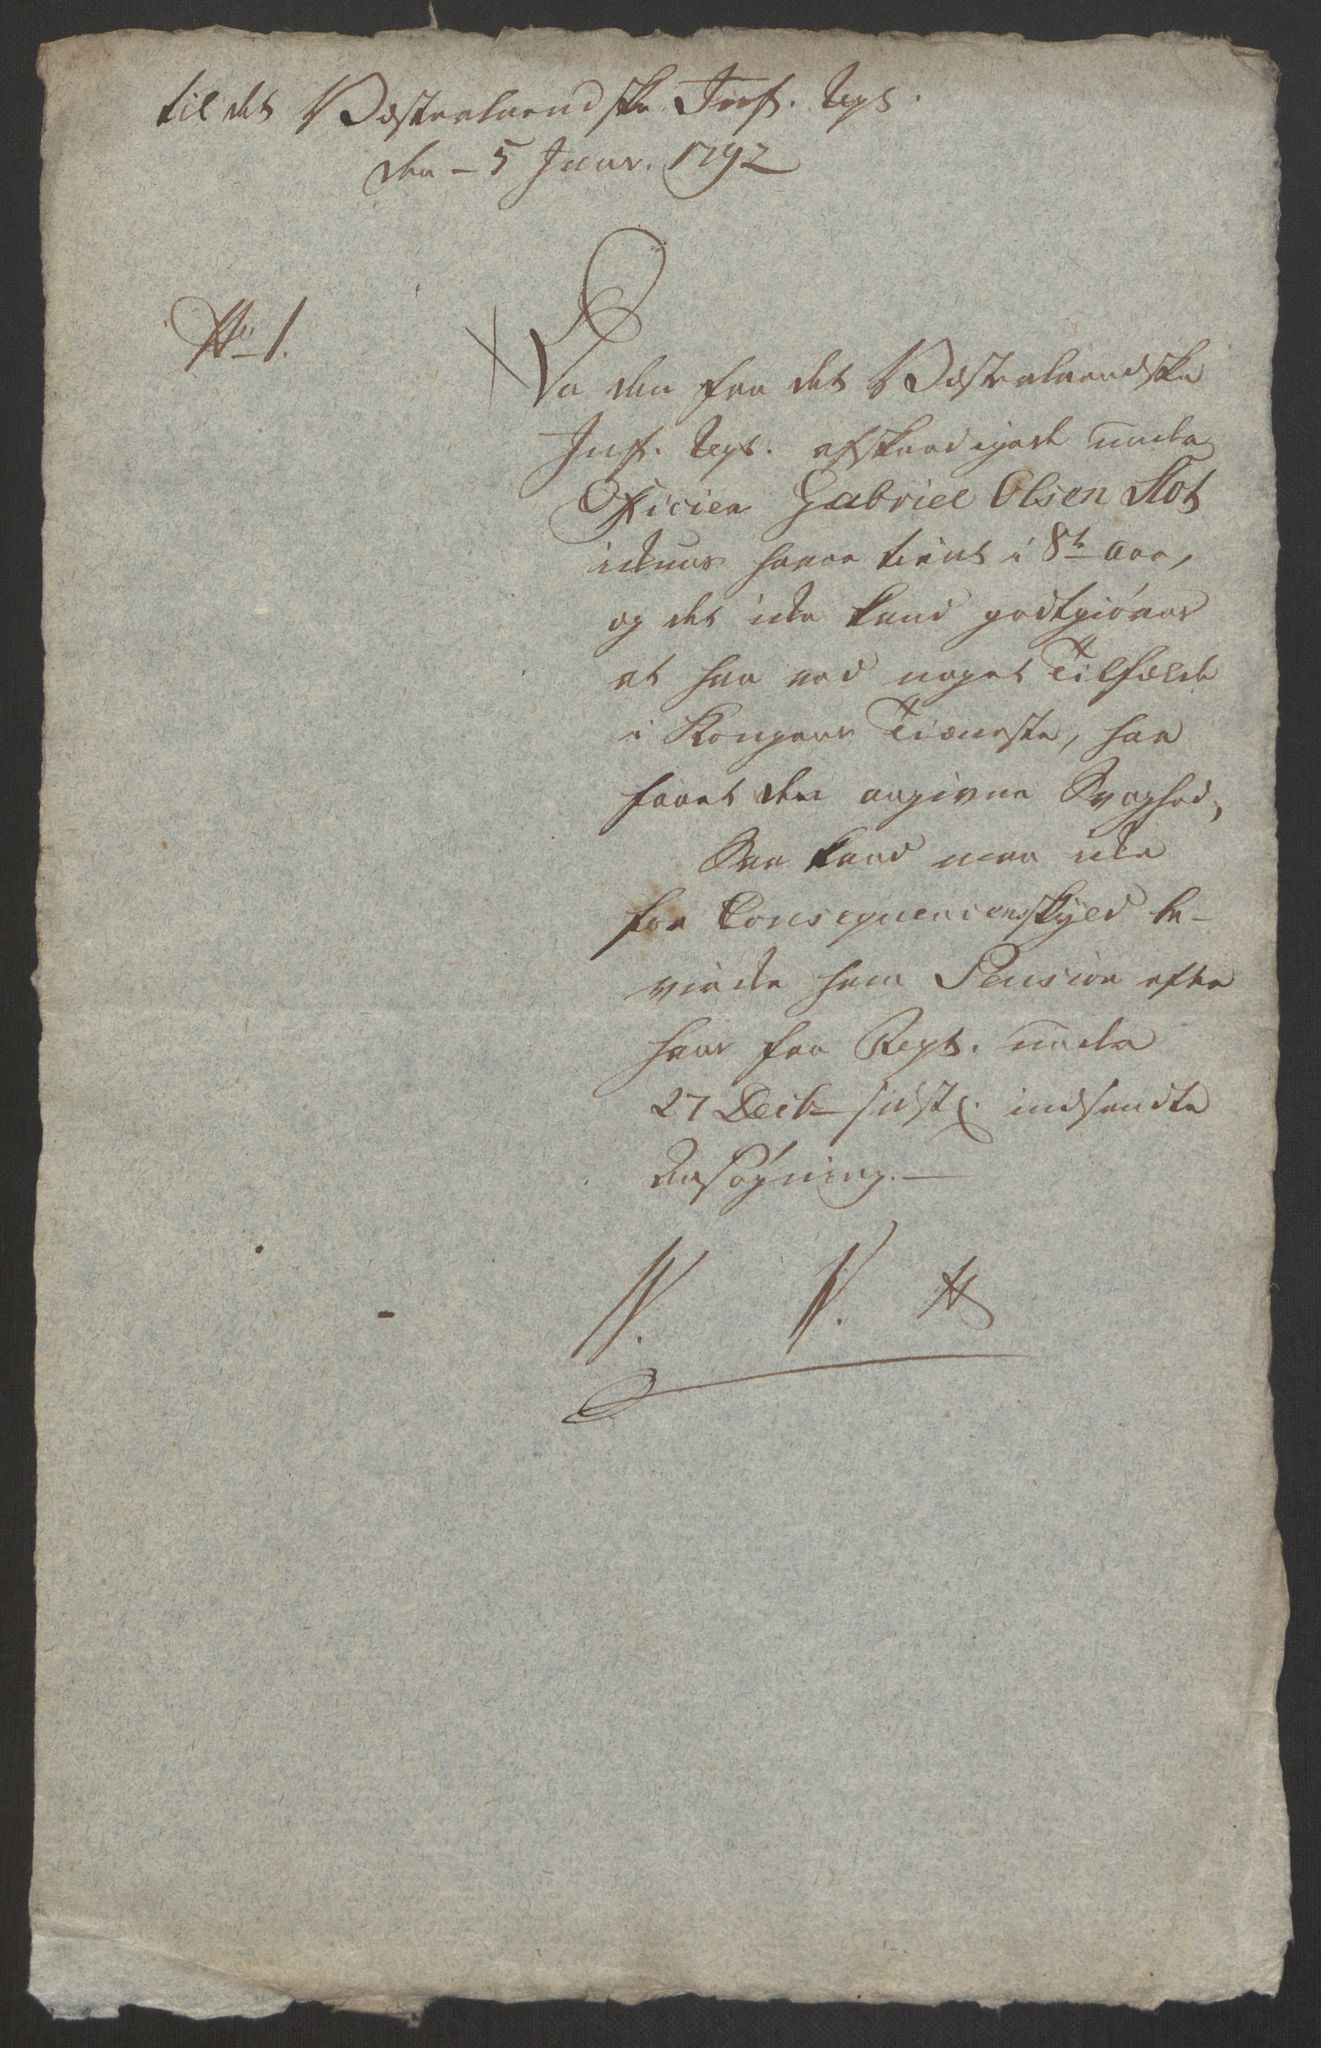 til det Vesterlenske Inf. Regt.
den - 5 Janr. 1792
No 1.
Da den fra det Vesterlenske
Inf. Regt. afskeedigede under
Officier Gabriel Olsen Slot
ickuns haver tient i 8te Aar,
og det icke kand godtgiøres
at han ved noget Tilfælde
i Kongens Tieneste, har
faaet den angivne Svaghed,
Saa kand man icke
for Consequencens skyld be-
virke ham Pension efter
hans fra Regt. under
27 Decbr sidstl. indsendte
Ansøgning. —
N. N. H